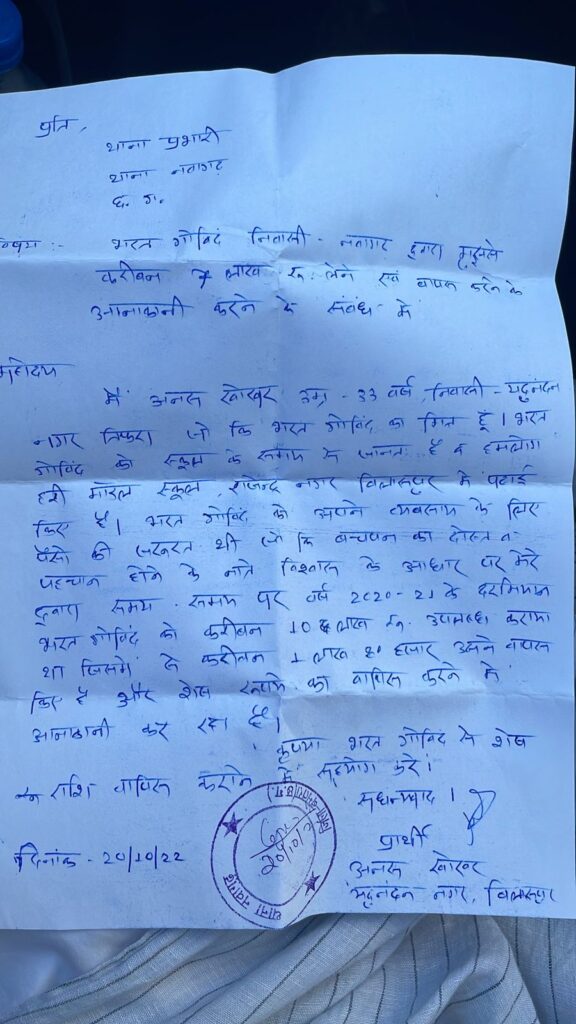 प्रति,
थाना प्रभारी
थाना नवागढ़
छ. ग.
विषय :- भरत गोविंद निवासी - नवागढ़ द्वारा मुझसे
करीबन 7 लाख रू. लेने एवं वापस करने के
आनाकानी करने के संबंध में
महोदय
मैं अनस खोखर उम्र - 33 वर्ष, निवासी - यदुनंदन
नगर तिफरा जो कि भरत गोविंद का मित्र हूँ। भरत
गोविंद को स्कूल के समय से जानता हूँ व हमलोग
मॉडल स्कूल, राजेन्द्र नगर बिलासपुर में पढाई
किए है। भरत गोविंद को अपने व्यवसाय के लिए
पैसो की जरूरत थी जो कि बचपन का दोस्त व
पहचान होने के नाते विश्वास के आधार पर मेरे
द्वारा समय - समय पर वर्ष 2020-21 के दरमियान
भरत गोविंद को करीबन लाख रू. उपलब्ध कराया
था जिसमे से करीबन 1 लाख 80 हजार उसने वापस
किए है और शेष रूपये का वापिस करने में
आनाकानी कर रहा है।
कृपया भरत गोविंद से शेष
राशि वापिस कराने में सहयोग करे।
सधन्यवाद।
प्रार्थी
दिनांक - 20/10/22
अनस खोखर
यदुनंदन नगर, बिलासपुर
थाना नवागढ़